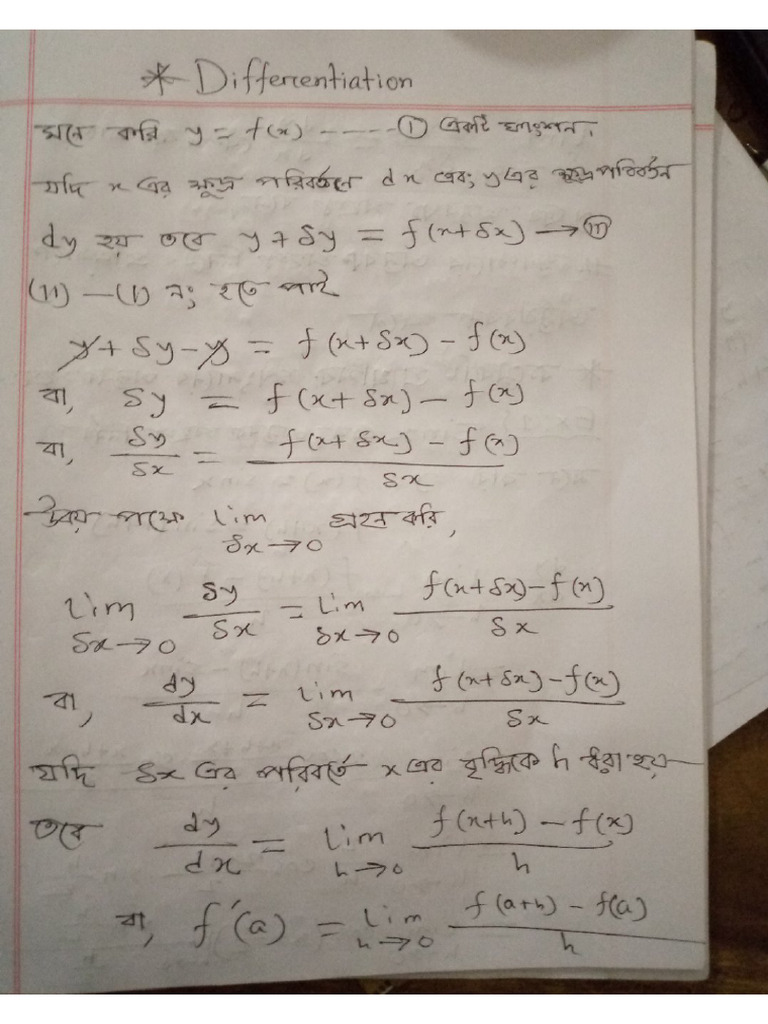 * Differentiation
মনে করি y = f(x) ----- (i) একটি ফাংশন।
যদি x এর ক্ষুদ্র পরিবর্তনে dx এবং y এর ক্ষুদ্র পরিবর্তন
dy হয় তবে y + δy = f(x+δx) → (ii)
(ii) — (i) নং হতে পাই
y + δy - y = f(x+δx) - f(x)
বা, δy = f(x+δx) - f(x)
বা, δy/δx = (f(x+δx) - f(x))/δx
উভয় পক্ষে lim δx→0 গ্রহন করি,
lim δx→0 δy/δx = lim δx→0 (f(x+δx) - f(x))/δx
বা, dy/dx = lim δx→0 (f(x+δx) - f(x))/δx
যদি δx এর পরিবর্তে x এর বৃদ্ধিকে h ধরা হয়
তবে dy/dx = lim h→0 (f(x+h) - f(x))/h
বা, f'(a) = lim h→0 (f(a+h) - f(a))/h